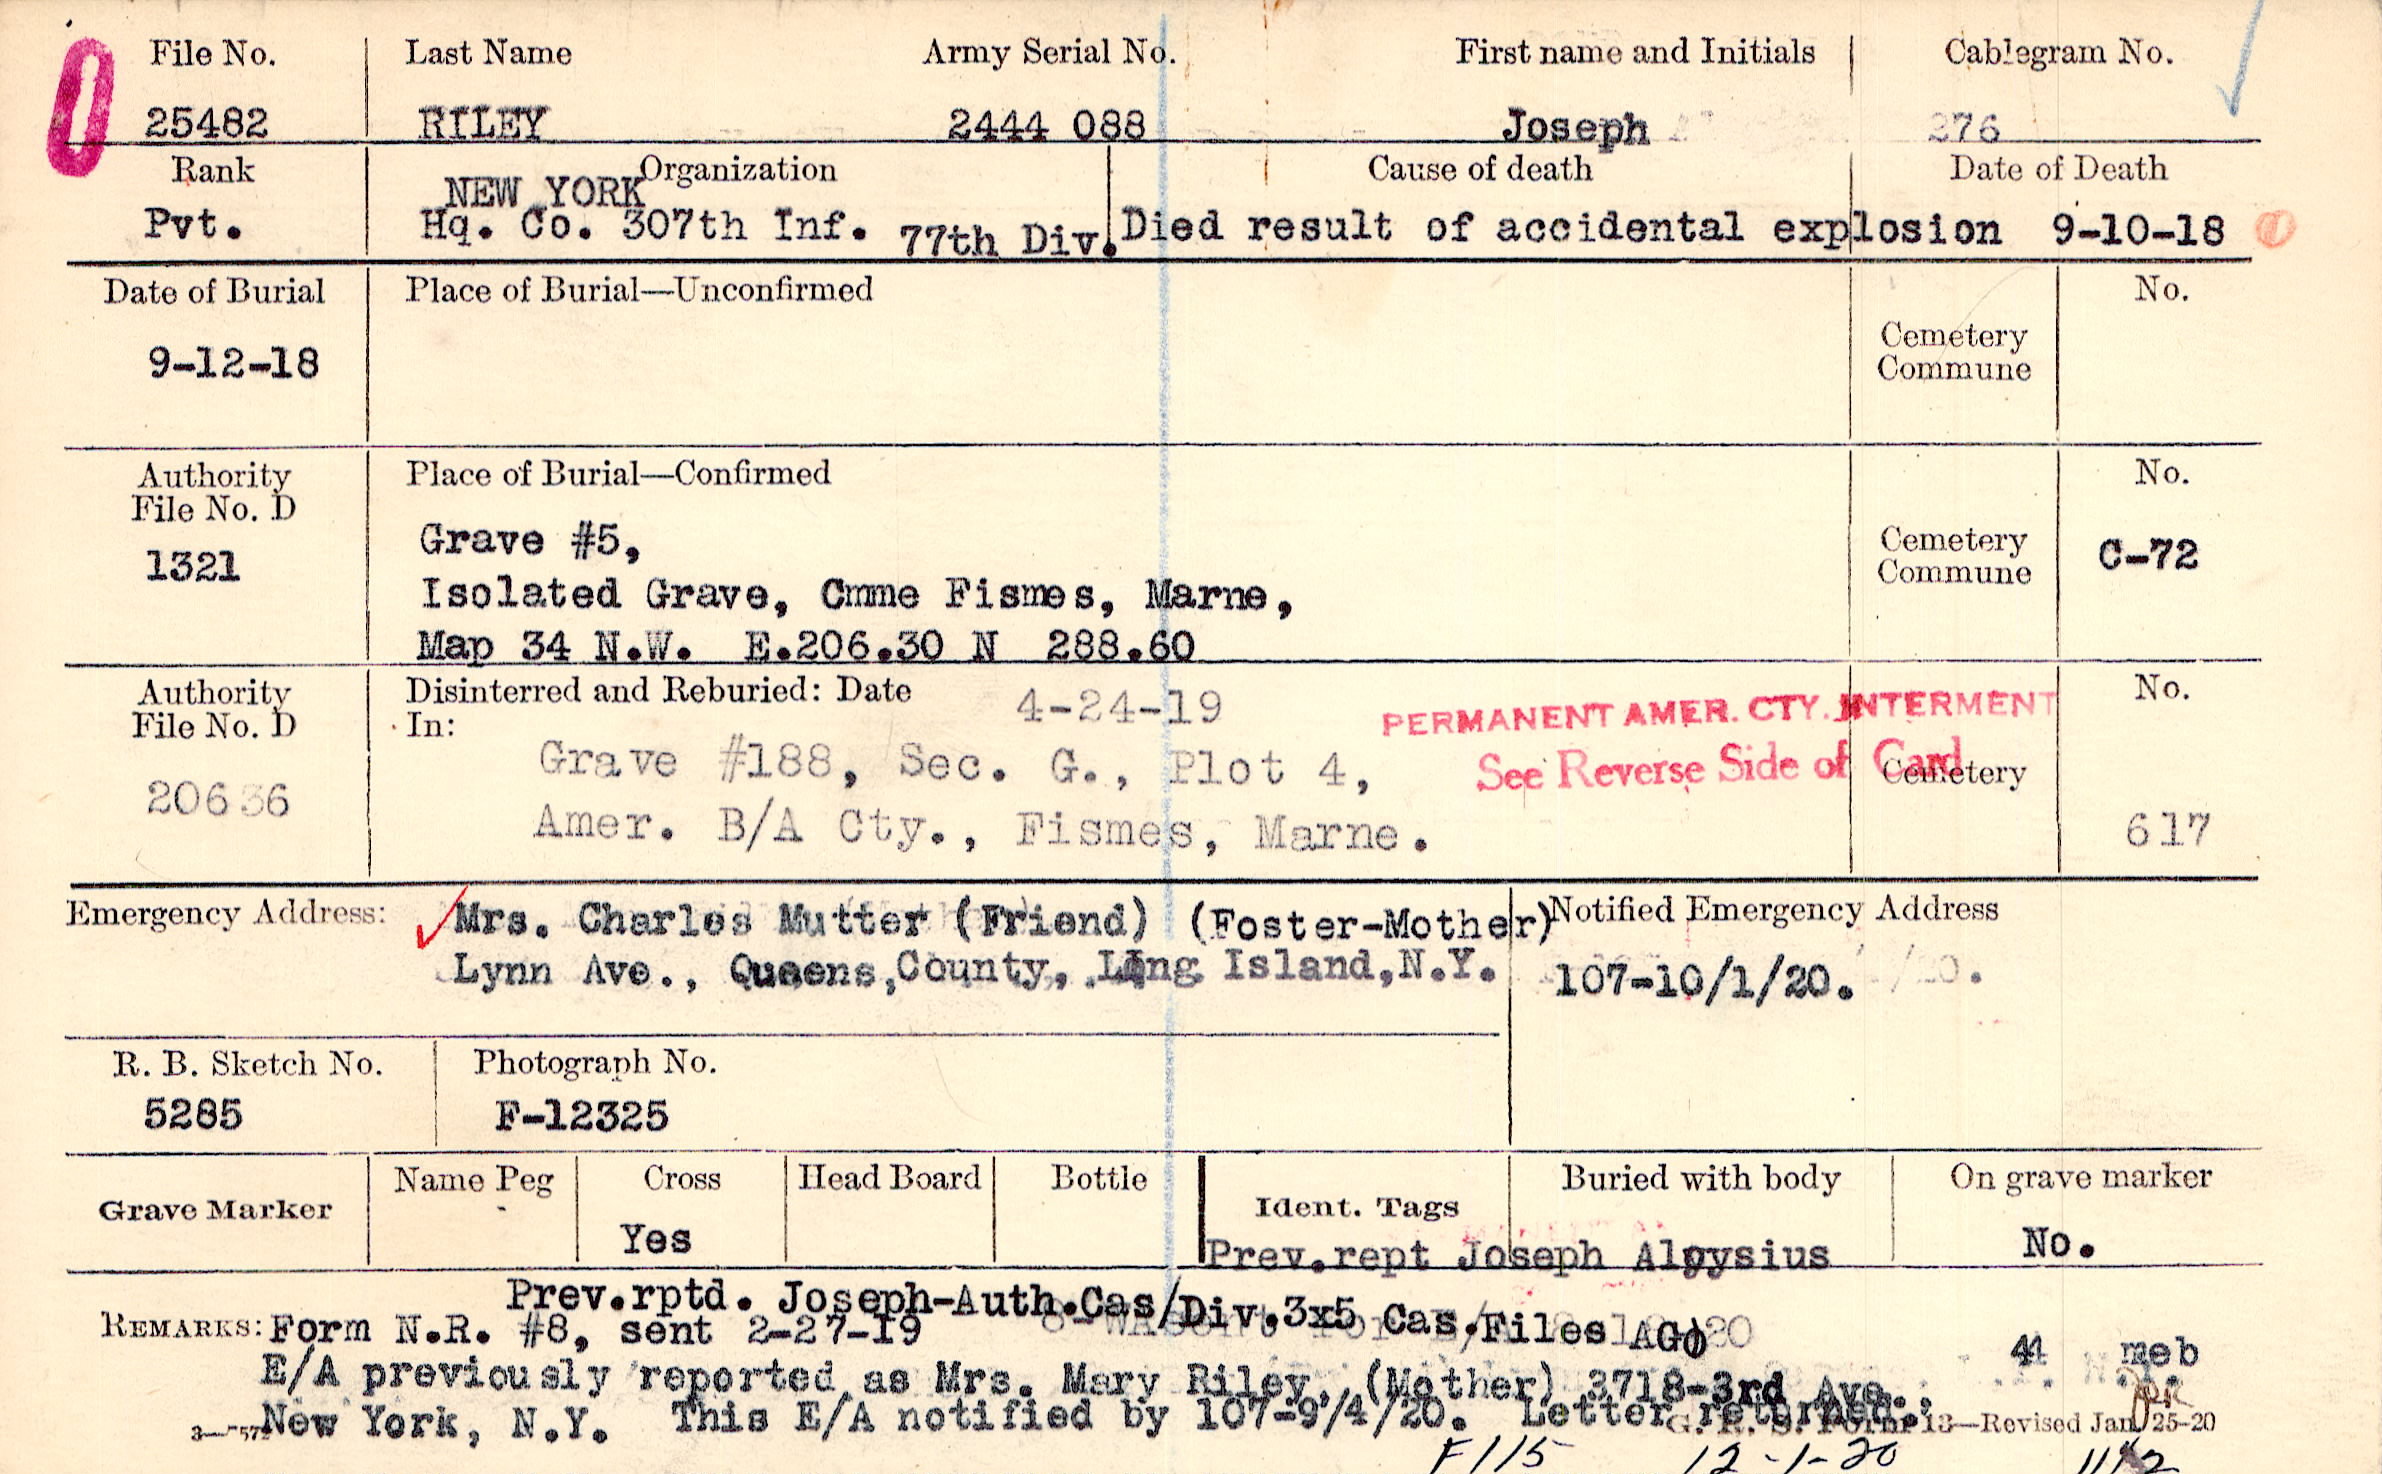 File No. Last Name Army Serial No. First name and Initials Cablegram No.
25482 RILEY 2444 088 Joseph 276
Rank Organization Cause of death Date of Death
NEW YORK
Pvt. Hq. Co. 307th Inf. 77th Div. Died result of accidental explosion 9-10-18
Date of Burial Place of Burial—Unconfirmed No.
9-12-18 Cemetery
Commune
Authority Place of Burial—Confirmed No.
File No. D
1321 Grave #5, Cemetery C-72
Commune
Isolated Grave, Cmme Fismes, Marne,
Map 34 N.W. E.206.30 N 288.60
Authority Disinterred and Reburied: Date 4-24-19 PERMANENT AMER. CTY. INTERMENT No.
File No. D In:
20636 Grave #188, Sec. G., Plot 4, See Reverse Side of Card Cemetery
Amer. B/A Cty., Fismes, Marne. 617
Emergency Address: Mrs. Charles Mutter (Friend) (Foster-Mother) Notified Emergency Address
Lynn Ave., Queens, County, Lng Island, N.Y. 107-10/1/20.
R. B. Sketch No. Photograph No.
5285 F-12325
Grave Marker Name Peg Cross Head Board Bottle Ident. Tags Buried with body On grave marker
Yes Prev.rept Joseph Aloysius No.
Prev.rptd. Joseph-Auth.Cas/Div.3x5 Cas.Files AGO
REMARKS: Form N.R. #8, sent 2-27-19
44 meb
E/A previously reported as Mrs. Mary Riley, (Mother) 3718-3rd Ave.,
New York, N.Y. This E/A notified by 107-9/4/20. Letter returned.
G. R. S. Form 13—Revised Jan. 25-20
F115 12-1-20